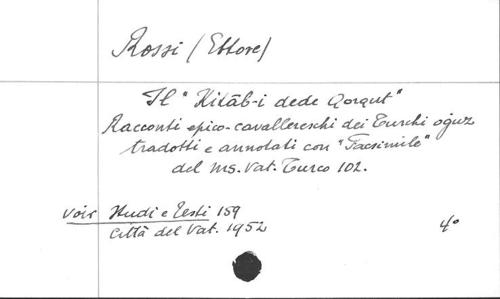 Rossi (Ettore)
Il "Kitāb-i dede Qorqut"
Racconti epico-cavallereschi dei Turchi oğuz
tradotti e annotati con "Facsimile"
del ms. Vat. Turco 102.
voir Studi e Testi 159
Città del Vat. 1952
4°